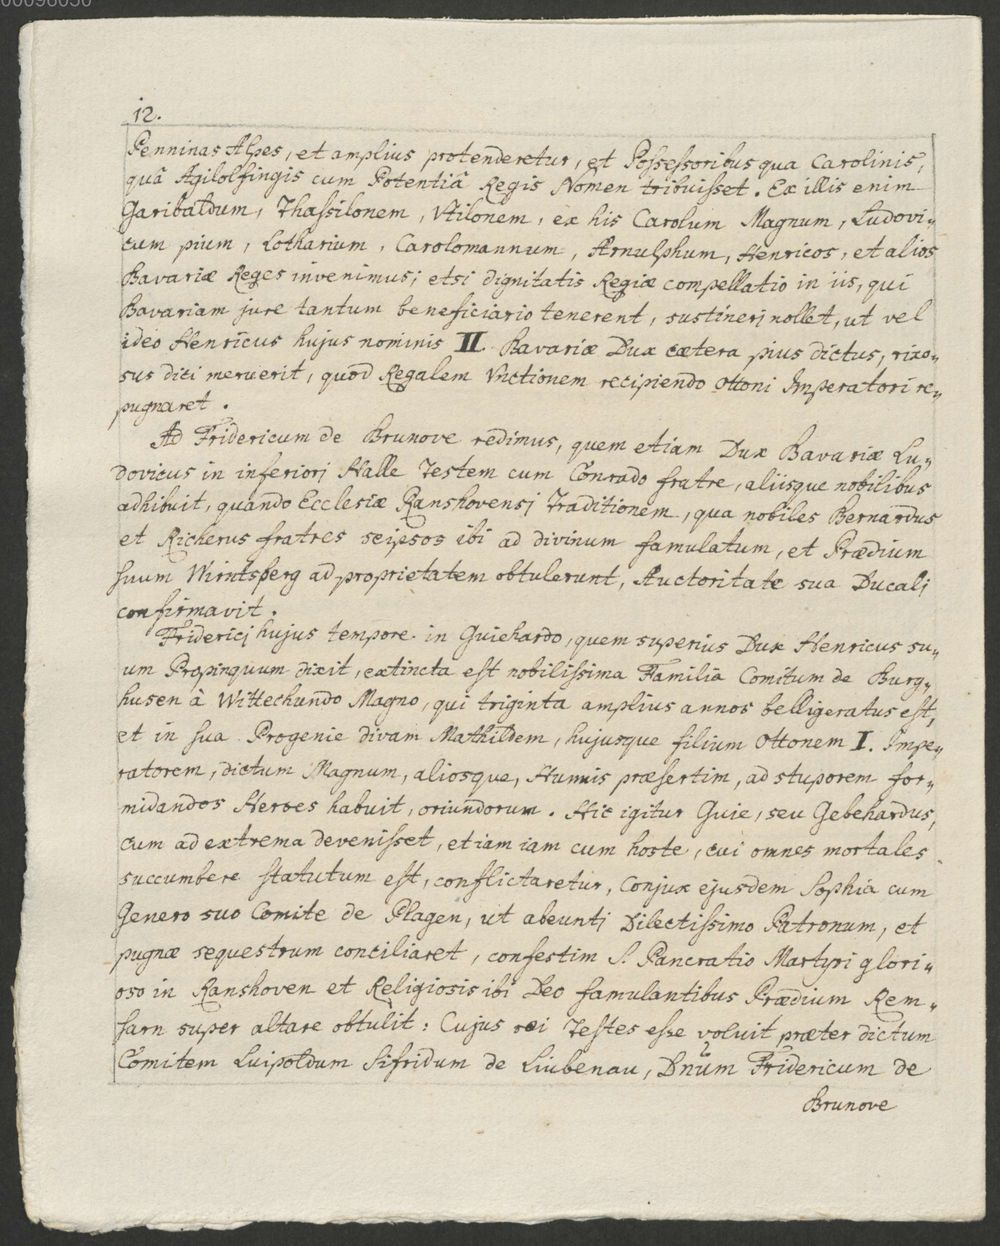 00096050
12.
Penninas Alpes, et amplius protenderetur, et Possessoribus qua Carolinis,
quâ Agilolfingis cum Potentiâ Regis Nomen tribuisset. Ex illis enim
Garibaldum, Thassilonem, Utilonem, ex his Carolum Magnum, Ludovi-
cum pium, Lotharium, Carolomannum, Arnulphum, Henricos, et alios
Bavariæ Reges invenimus; etsi dignitatis Regiæ compellatio in iis, qui
Bavariam jure tantum beneficiario tenerent, sustineri nollet, ut vel
ideo Henricus hujus nominis II. Bavariæ Dux cætera pius dictus, rixo-
sus dici meruerit, quod Regalem Unctionem recipiendo Ottoni Imperatori re-
pugnaret.
Ad Fridericum de Brunove redimus, quem etiam Dux Bavariæ Lu-
dovicus in inferiori Halle Testem cum Conrado fratre, aliisque nobilibus
adhibuit, quando Ecclesiæ Ranshovensi Traditionem, qua nobiles Bernardus
et Richerus fratres seipsos ibi ad divinum famulatum, et Prædium
suum Wirntsperg ad proprietatem obtulerunt, Auctoritate sua Ducali
confirmavit.
Friderici hujus tempore in Guiehardo, quem superius Dux Henricus su-
um Propinquum dixit, extincta est nobilissima Familia Comitum de Burg-
husen à Wittechundo Magno, qui triginta amplius annos belligeratus est,
et in sua Progenie divam Mathildem, hujusque filium Ottonem I. Impe-
ratorem, dictum Magnum, aliosque, Hunnis præsertim, ad stuporem for-
midandos Heroes habuit, oriundorum. Hic igitur Guie, seu Gebehardus,
cum ad extrema devenisset, etiam iam cum hoste, cui omnes mortales
succumbere statutum est, conflictaretur, Conjux ejusdem Sophia cum
Genero suo Comite de Plagen, ut abeunti Dilectissimo Patronum, et
pugnæ sequestrum conciliaret, confestim S. Pancratio Martyri glori-
oso in Ranshoven et Religiosis ibi Deo famulantibus Prædium Rem-
sarn super altare obtulit: Cujus rei Testes esse voluit præter dictum
Comitem Luipoldum Sifridum de Liubenau, Dnum Fridericum de
Brunove